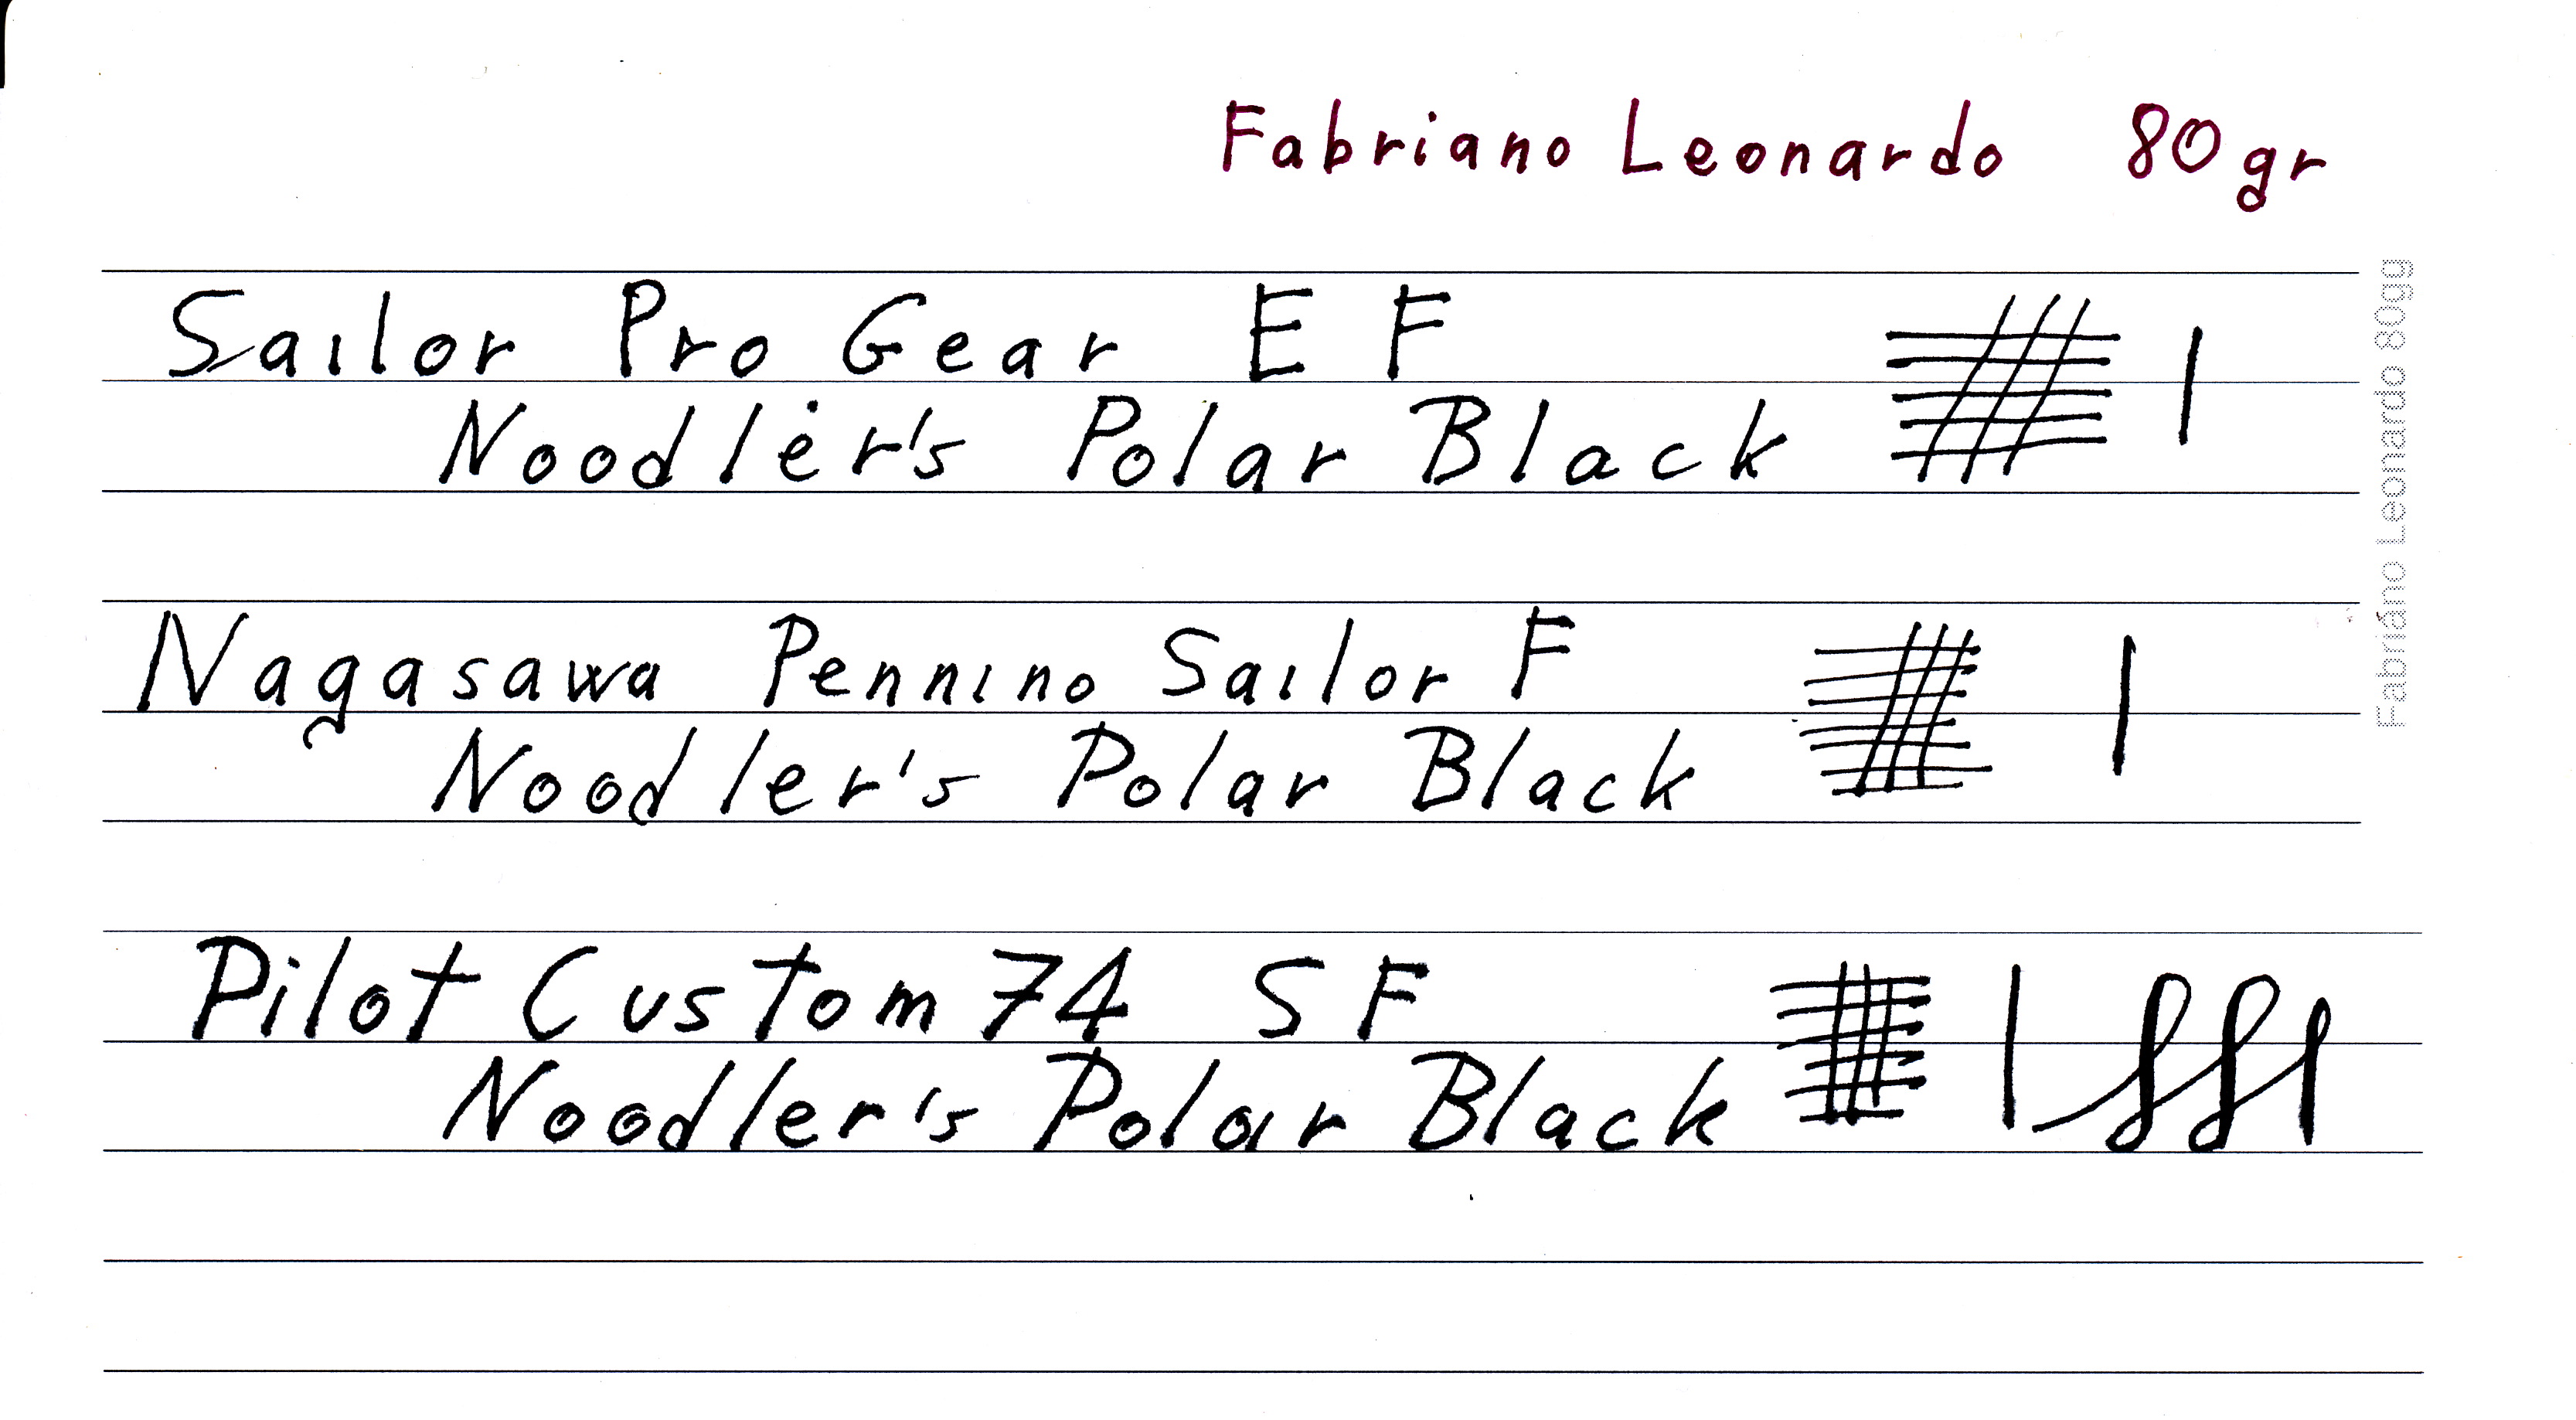 Fabriano Leonardo 80gr
Sailor Pro Gear EF
Noodler's Polar Black
Fabriano Leonardo 80gg
Nagasawa Pennino Sailor F
Noodler's Polar Black
Pilot Custom 74 SF
Noodler's Polar Black